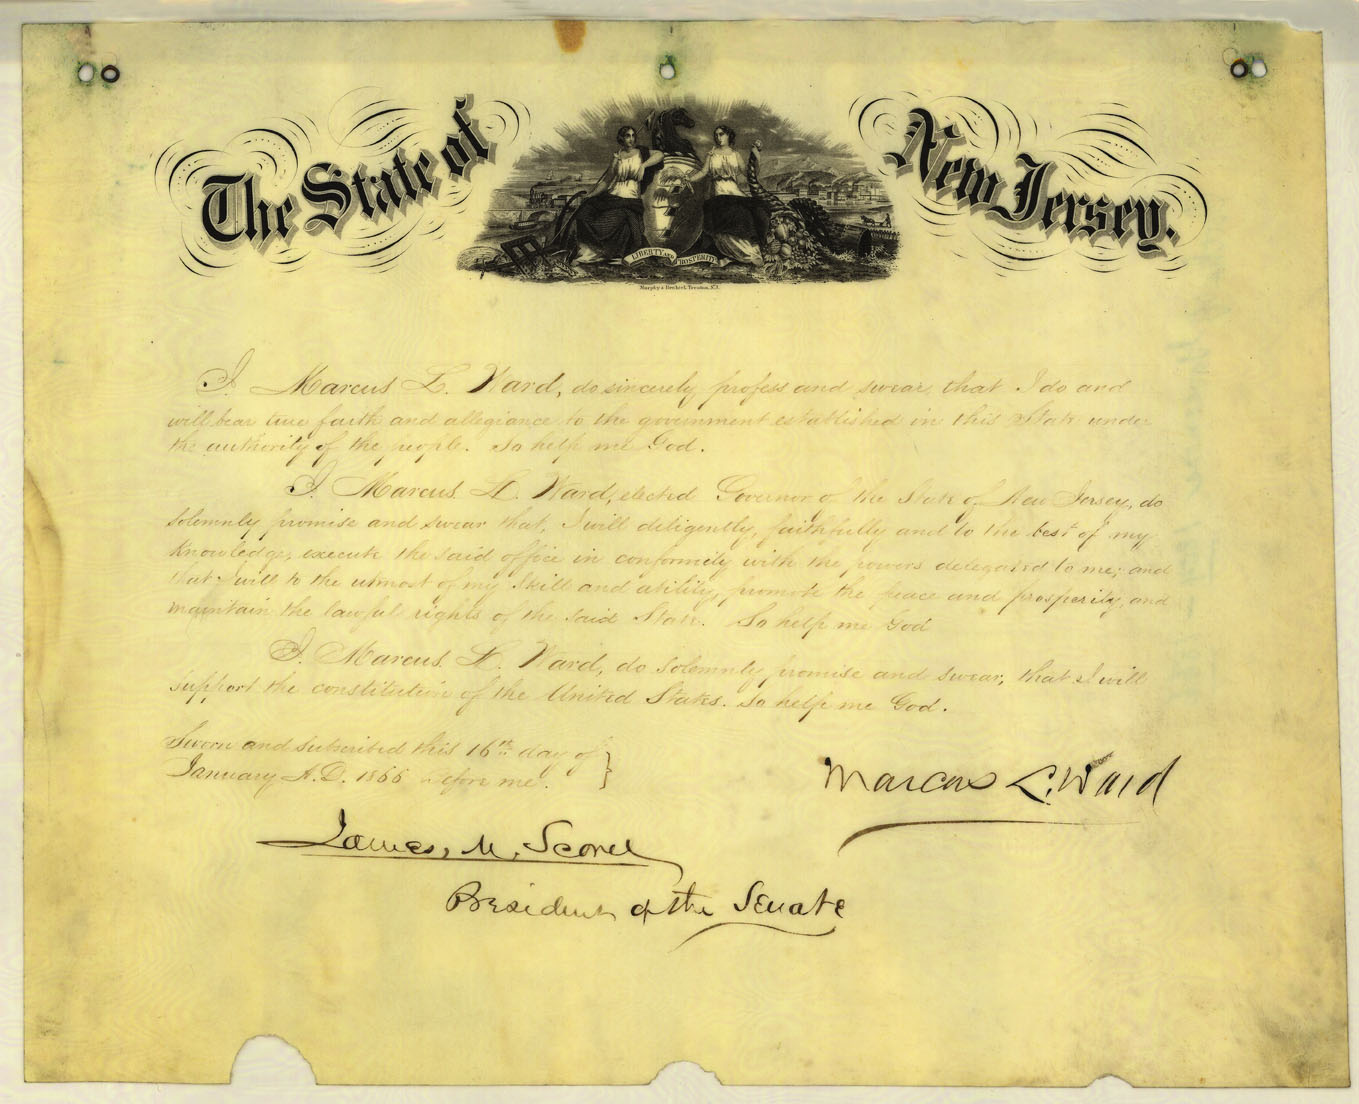 The State of New Jersey.
LIBERTY AND PROSPERITY
Murphy & Bechtel, Trenton, N.J.
I Marcus L. Ward, do sincerely profess and swear, that I do and
will bear true faith and allegiance to the government established in this State under
the authority of the people. So help me God.
I Marcus L. Ward, elected Governor of the State of New Jersey, do
solemnly promise and swear that, I will diligently, faithfully and to the best of my
knowledge, execute the said office in conformity with the powers delegated to me; and
that I will to the utmost of my skill and ability, promote the peace and prosperity, and
maintain the lawful rights of the said State. So help me God
I Marcus L. Ward, do solemnly promise and swear, that I will
support the constitution of the United States. So help me God.
Sworn and subscribed this 16th day of
January A.D. 1866 before me.
Marcus L. Ward
James M. Scovel
President of the Senate